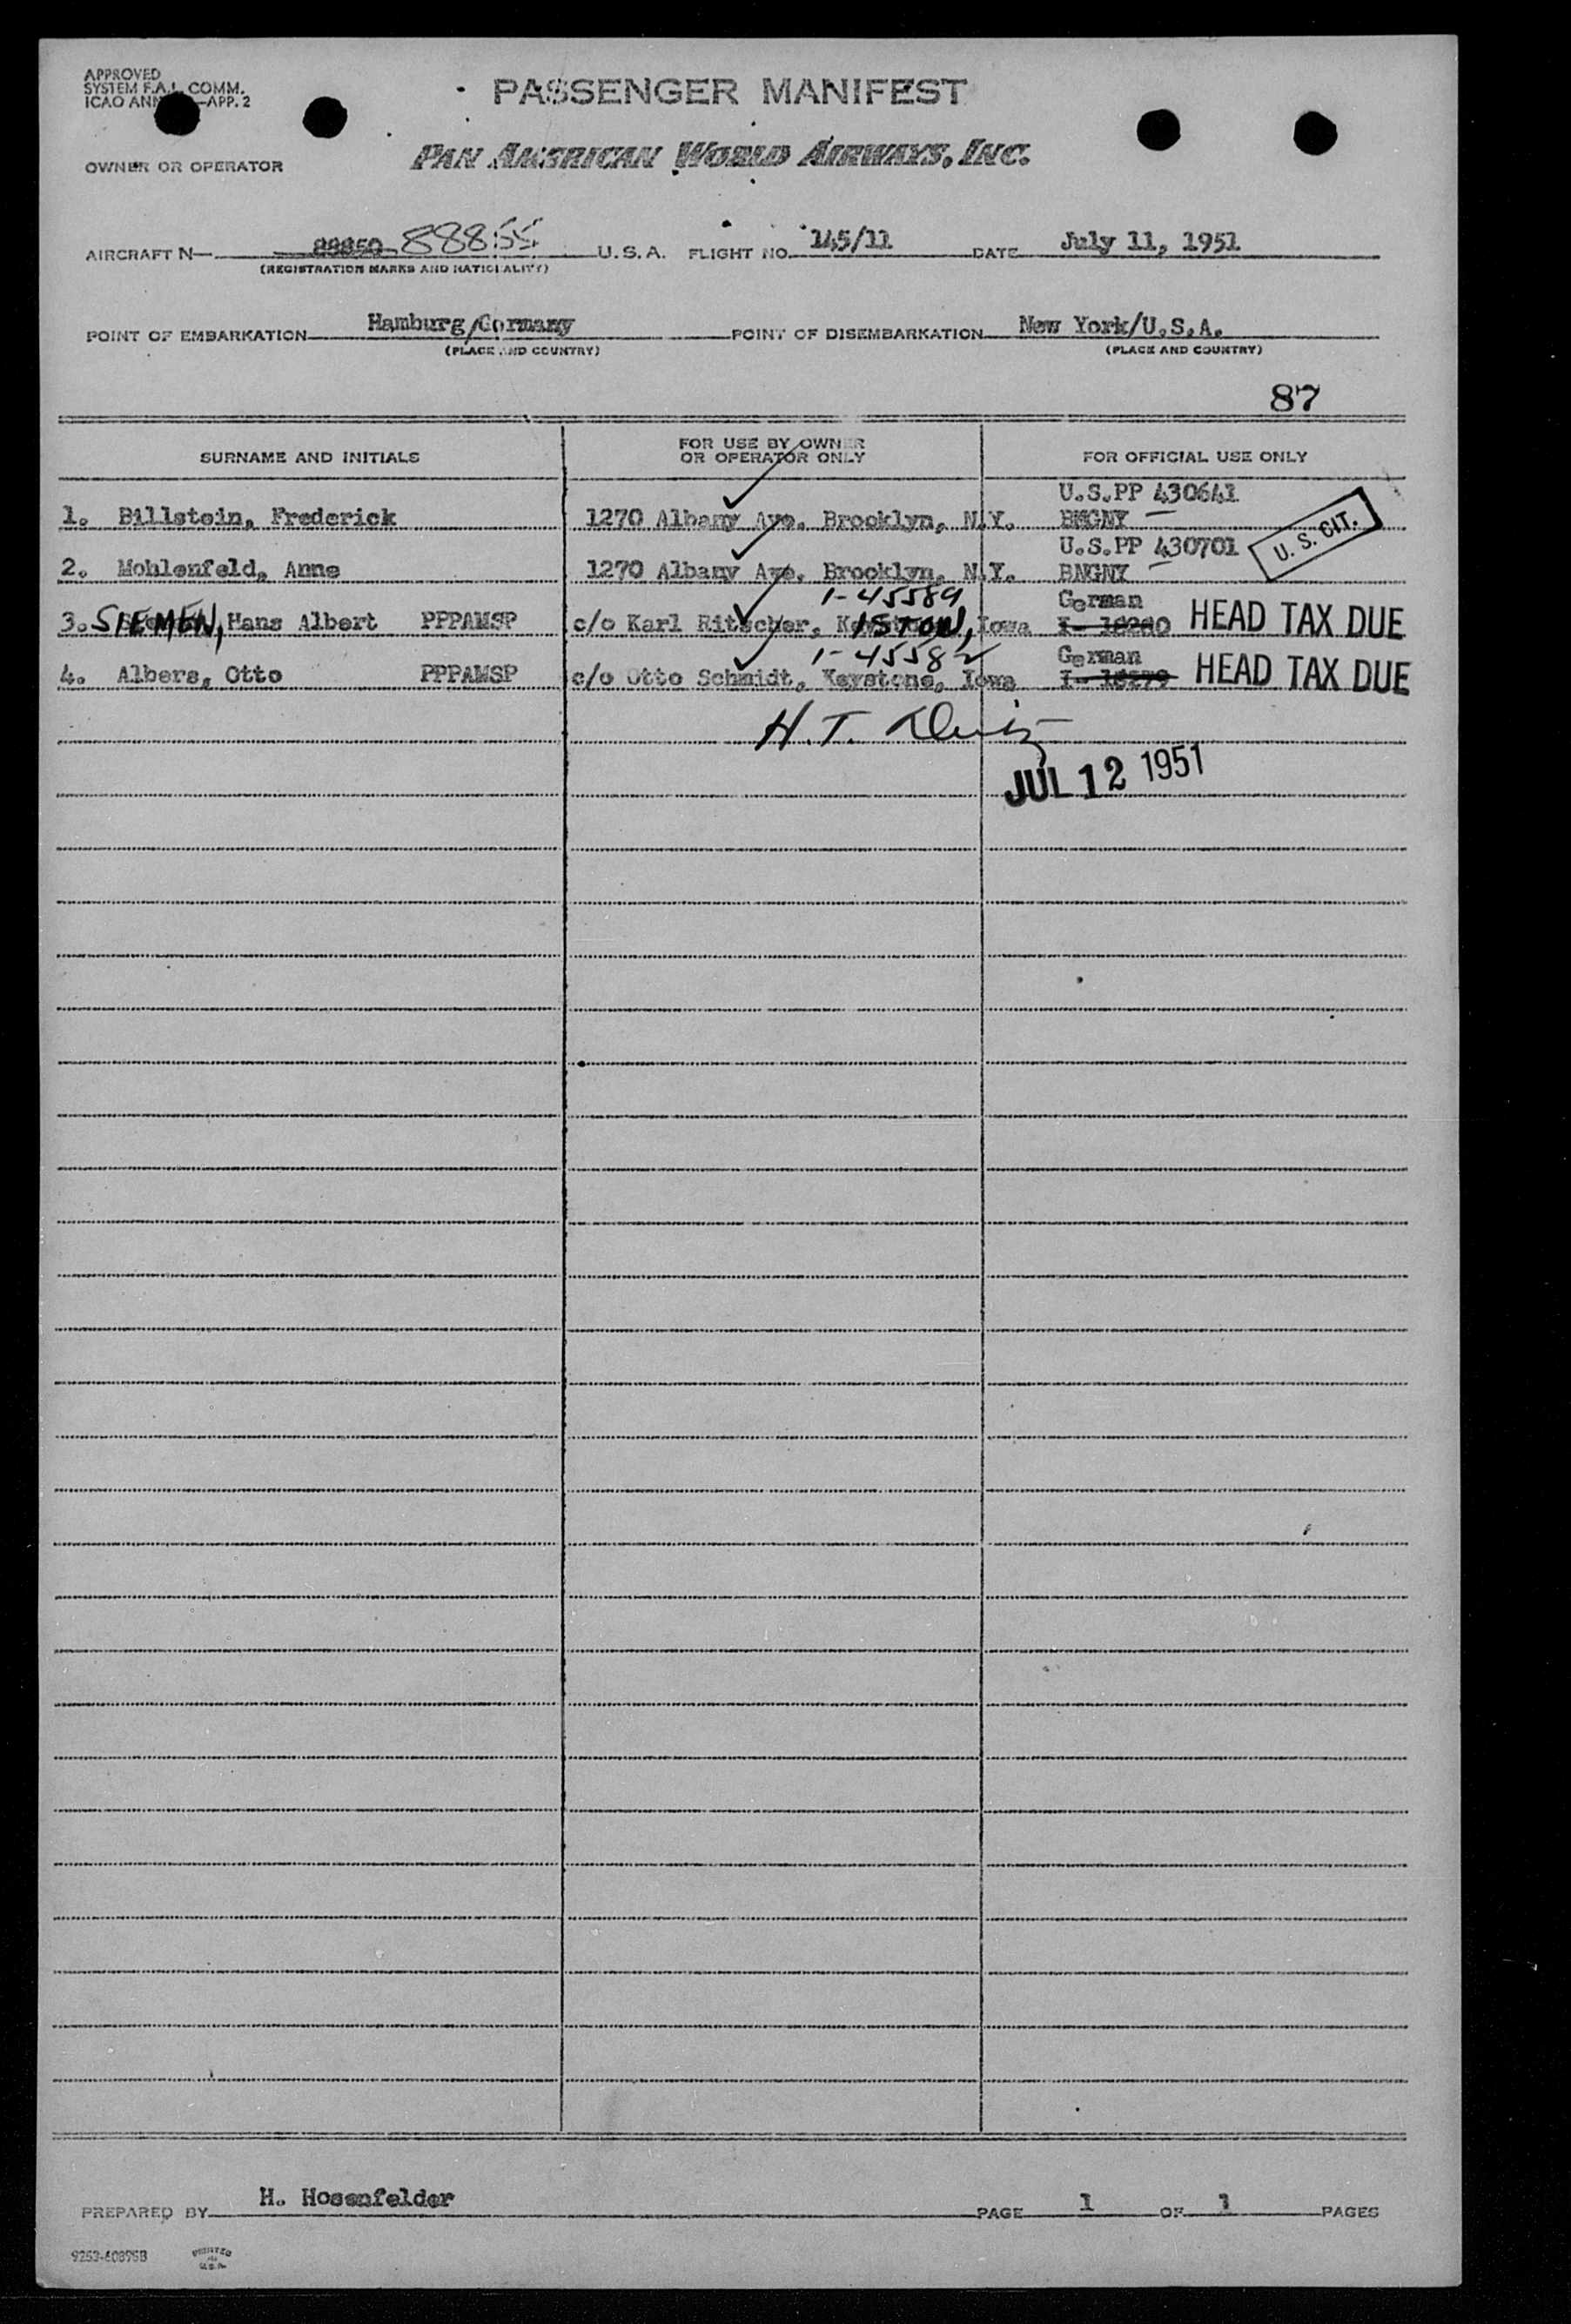 APPROVED
SYSTEM F.A.L. COMM.
ICAO ANN —APP. 2
PASSENGER MANIFEST
OWNER OR OPERATOR PAN AMERICAN WORLD AIRWAYS, INC.
AIRCRAFT N— 88850 88855 U.S.A. FLIGHT NO. 145/11 DATE July 11, 1951
(REGISTRATION MARKS AND NATIONALITY)
POINT OF EMBARKATION Hamburg/Germany POINT OF DISEMBARKATION New York/U.S.A.
(PLACE AND COUNTRY) (PLACE AND COUNTRY)
87
SURNAME AND INITIALS FOR USE BY OWNER OR OPERATOR ONLY FOR OFFICIAL USE ONLY
U.S.PP 430641
1. Billstein, Frederick 1270 Albany Ave. Brooklyn, N.Y. BNGNY
U.S.PP 430701 U. S. CIT.
2. Mohlenfeld, Anne 1270 Albany Ave. Brooklyn, N.Y. BNGNY
1-45589 German
3. SIEMEN, Hans Albert PPPAMSP c/o Karl Ritscher, Iowa I- 18280 HEAD TAX DUE
1-45582 German
4. Albers, Otto PPPAMSP c/o Otto Schmidt, Keystone, Iowa I- 18279 HEAD TAX DUE
H. T.
JUL 12 1951
PREPARED BY H. Hosenfelder PAGE 1 OF 1 PAGES
9253-40895B PRINTED IN U.S.A.